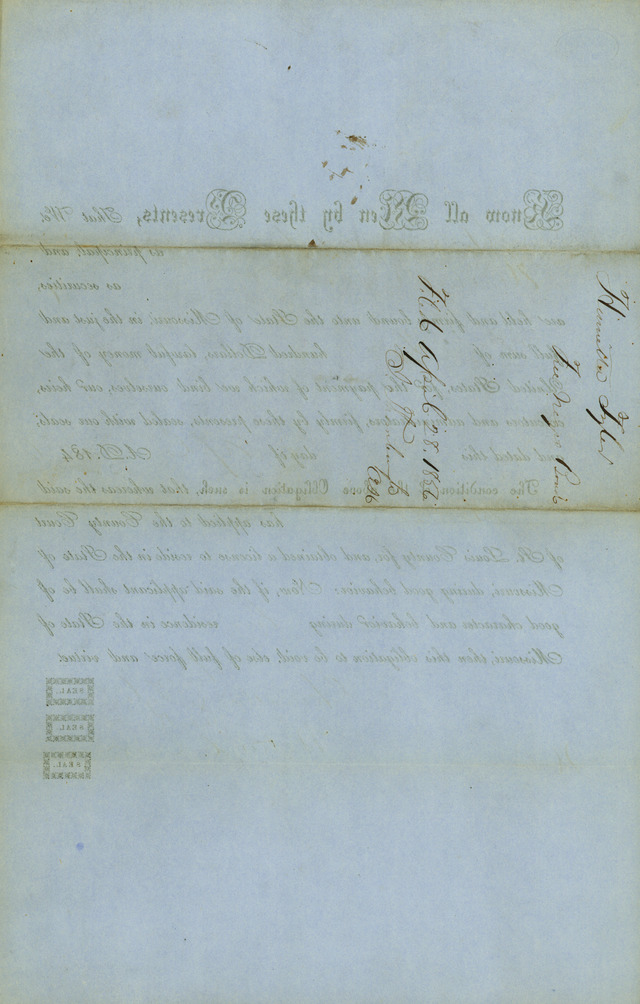 Free Negro Bond
Filed
Clk
Know all Men by these Presents, That We
as principal, and
as securities,
are held and firmly bound unto the State of Missouri, in the just and
full sum of hundred Dollars, lawful money of the
United States, for the payment of which we bind ourselves, our heirs,
executors and administrators, firmly by these presents, sealed with our seals;
and dated this day of A.D. 184
The condition of the above Obligation is such, that whereas the said
has applied to the County Court
of St. Louis County for, and obtained a license to reside in the State of
Missouri, during good behavior: Now, if the said applicant shall be
of good character and behavior during residence in the State of
Missouri, then this obligation to be void, else of full force and virtue.
SEAL.
SEAL.
SEAL.